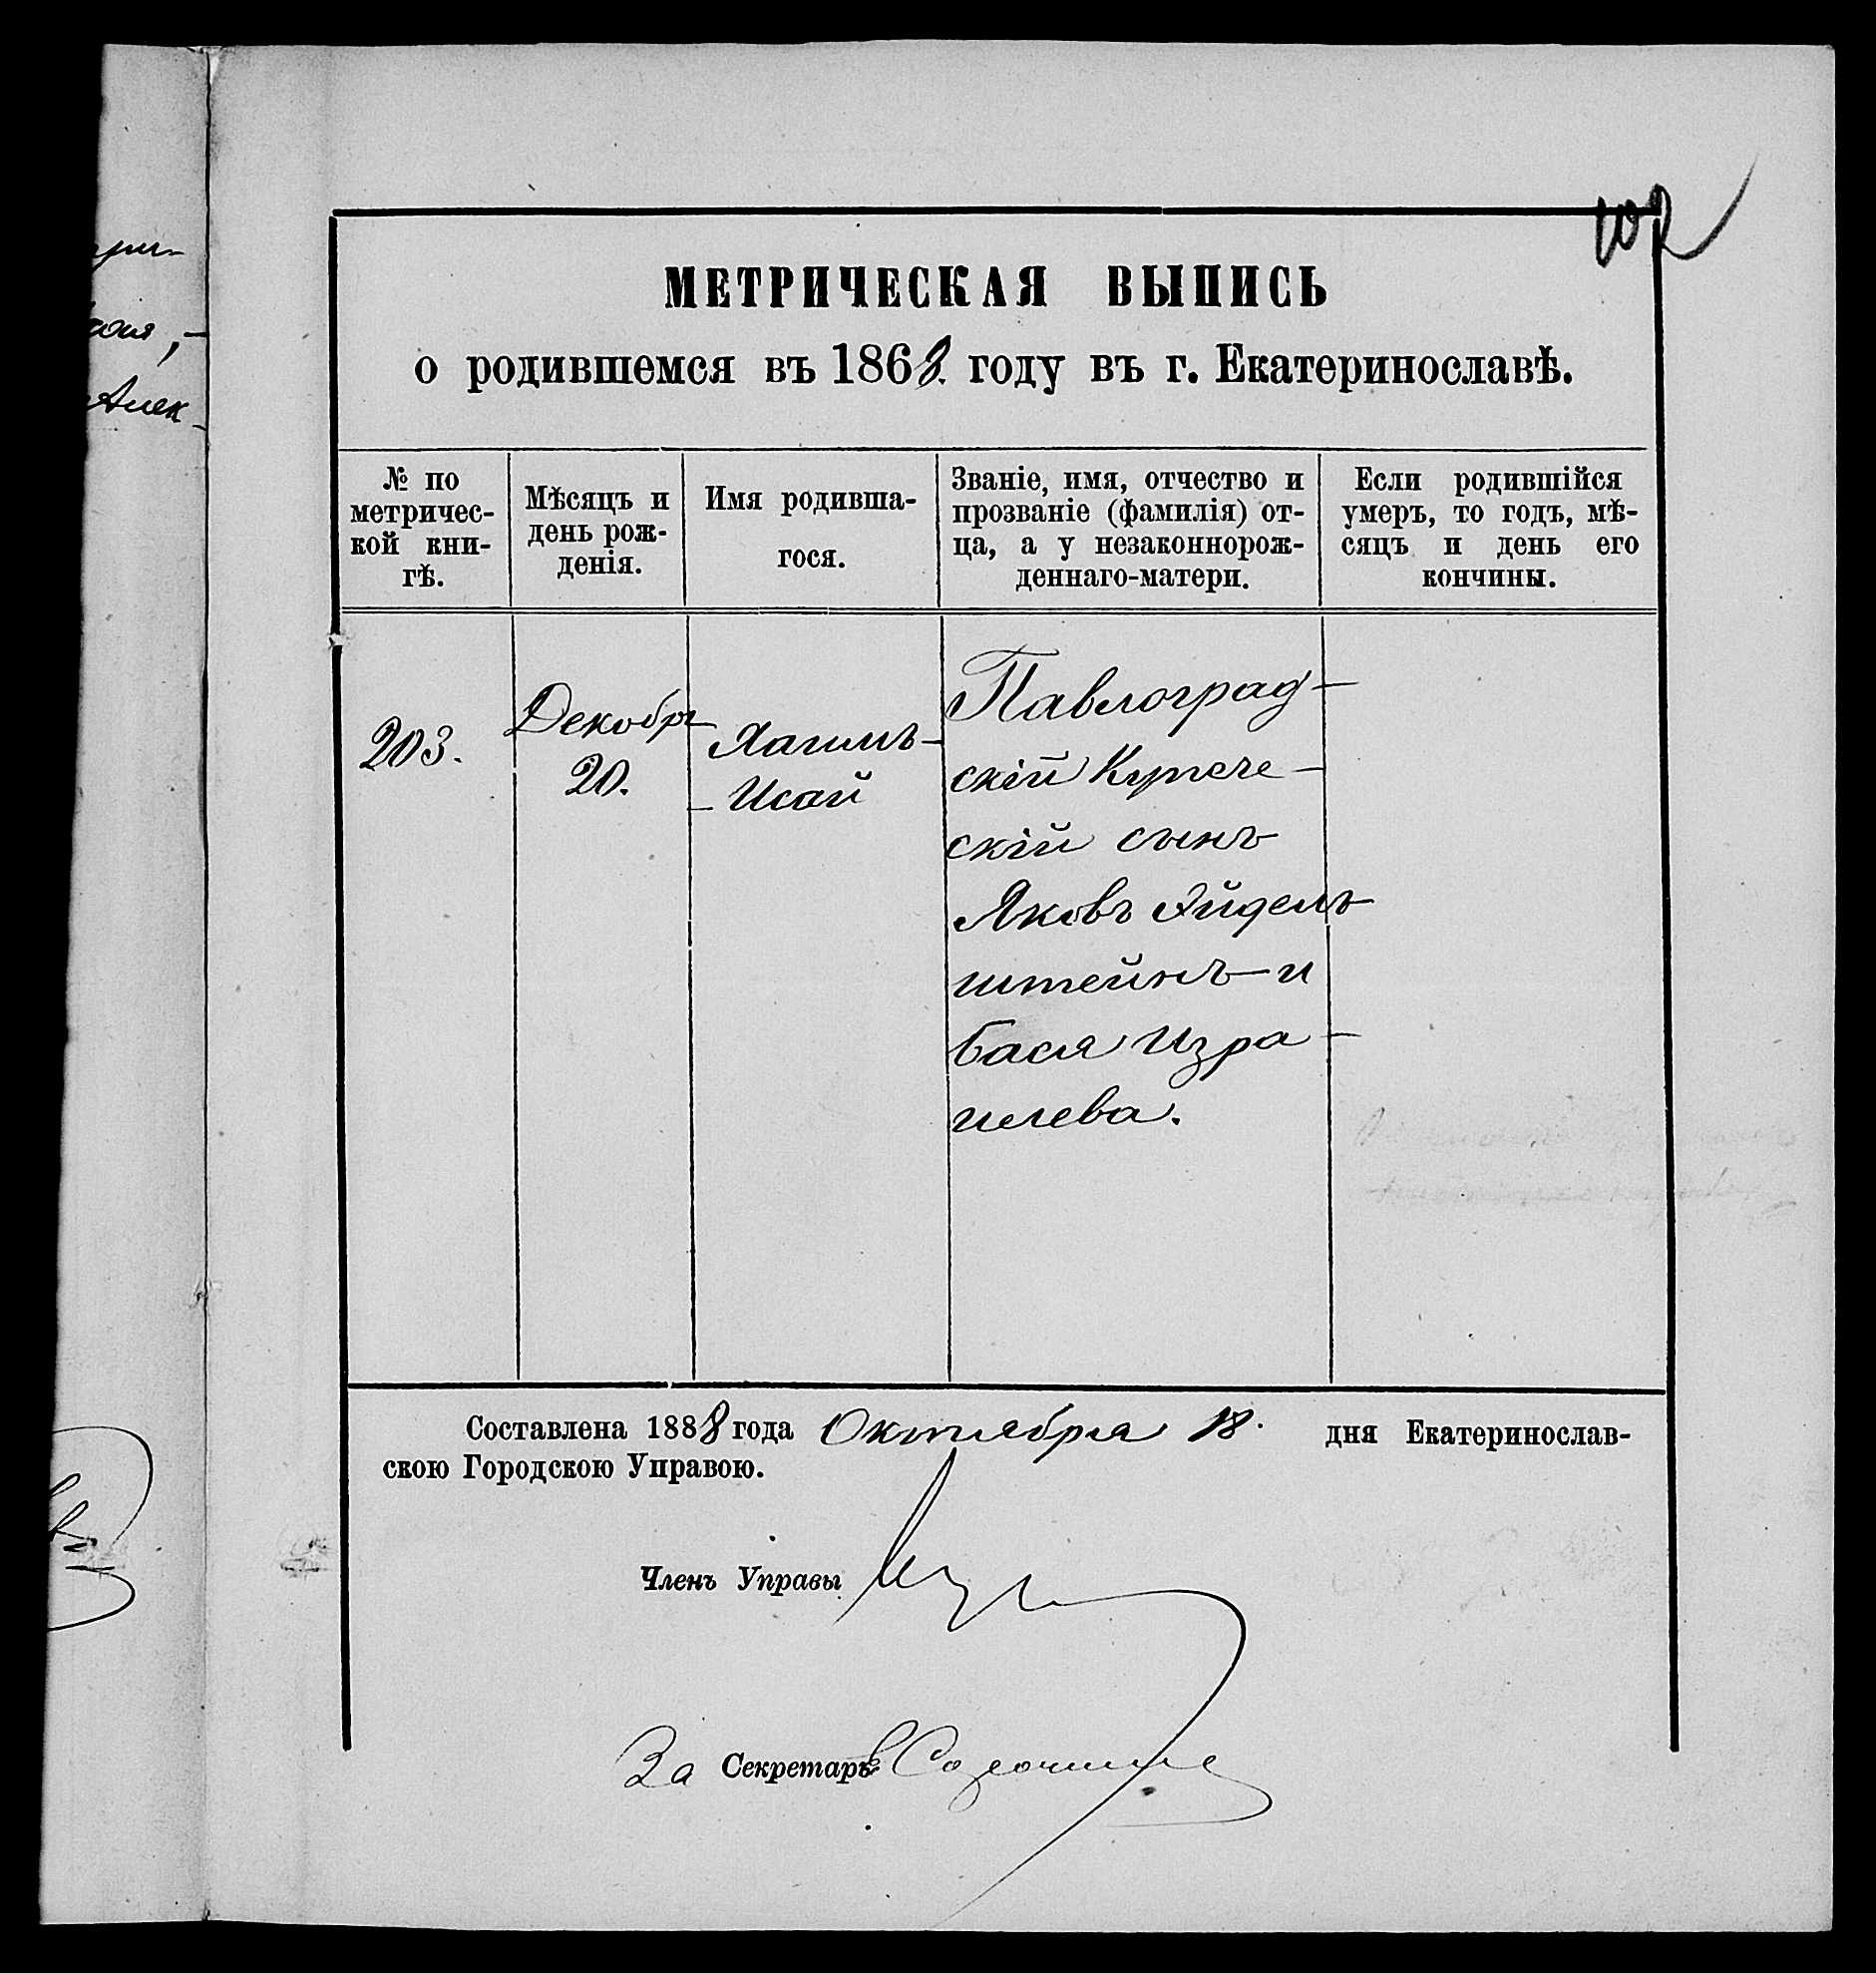 102
МЕТРИЧЕСКАЯ ВЫПИСЬ
о родившемся въ 1868. году въ г. Екатеринославѣ.
№ по
метричес-
кой кни-
гѣ.
Мѣсяцъ и
день рож-
денія.
Имя родивша-
гося.
Званіе, имя, отчество и
прозваніе (фамилія) от-
ца, а у незаконнорож-
деннаго-матери.
Если родившійся
умеръ, то годъ, мѣ-
сяцъ и день его
кончины.
203.
Декабря
20.
Хаимъ-
- Исай
Павлоград-
скій Купече-
скій сынъ
Яковъ Эйдель
штейнъ и
Бася Изра-
илева.
Составлена 1888 года Октября 18. дня Екатеринослав-
скою Городскою Управою.
Членъ Управы
За Секретаря
Алек-